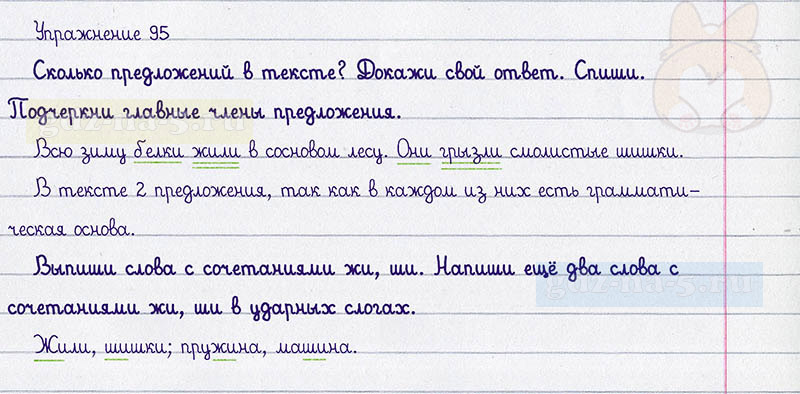 Упражнение 95
Сколько предложений в тексте? Докажи свой ответ. Спиши.
Подчеркни главные члены предложения.
gdz-na-5.ru
Всю зиму белки жили в сосновом лесу. Они грызли смолистые шишки.
В тексте 2 предложения, так как в каждом из них есть граммати-
ческая основа.
Выпиши слова с сочетаниями жи, ши. Напиши ещё два слова с
gdz-na-5.ru
сочетаниями жи, ши в ударных слогах.
Жили, шишки; пружина, машина.